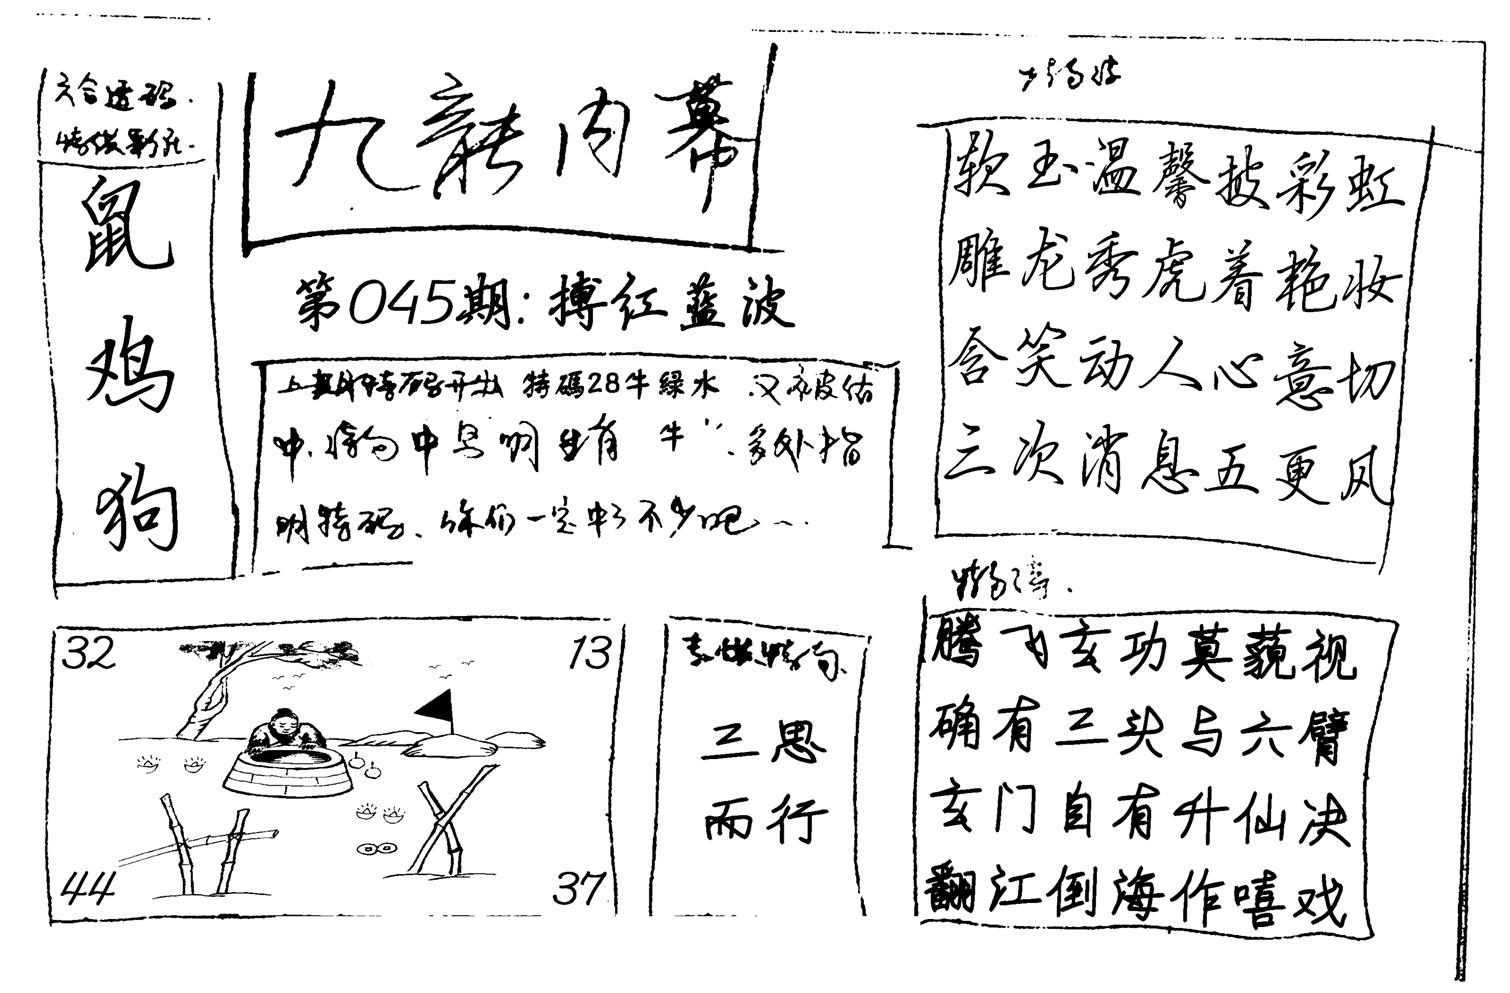 六合透码.
鼠
鸡
狗
九龍内幕
第045期:搏红蓝波
上期特码开出 特碼28牛緑水
中.特 中 明 生肖 牛
明特码、你们一定中了不少吧~.
软玉温馨披彩虹
雕龙秀虎着艳妆
含笑动人心意切
三次消息五更风
腾飞玄功莫藐视
确有三头与六臂
玄门自有升仙决
翻江倒海作嘻戏
32
13
44
37
三思
而行